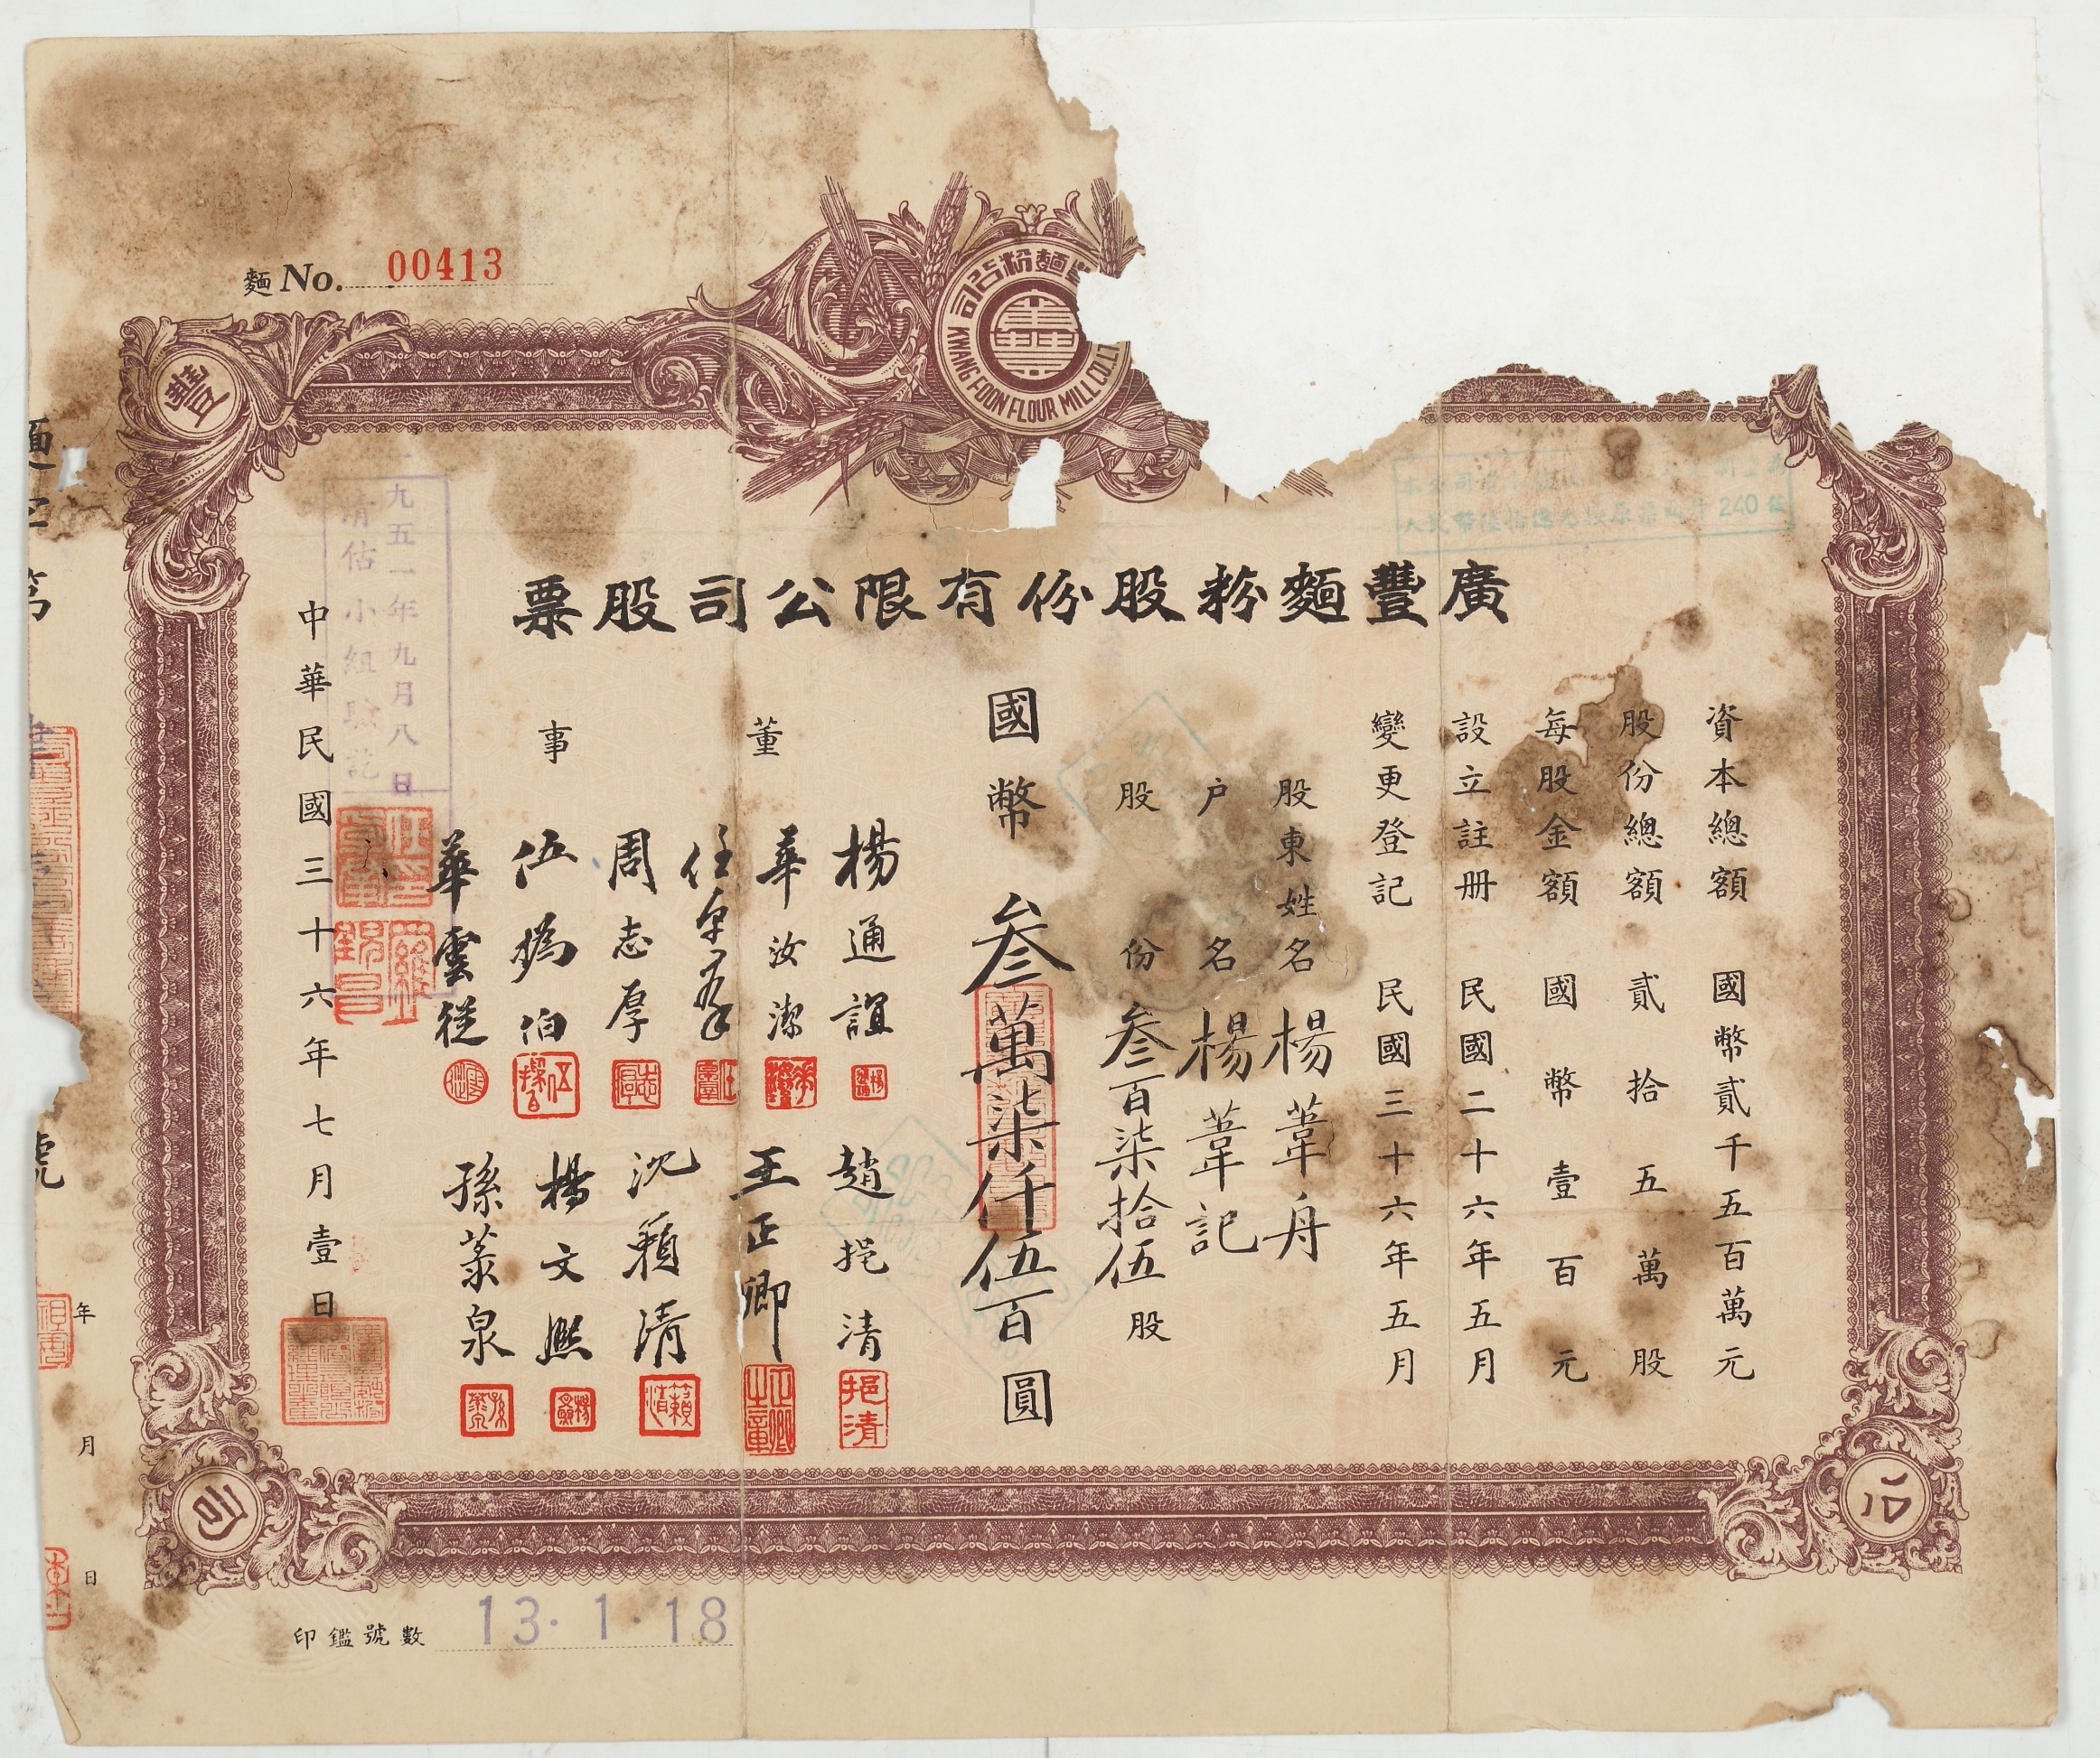 麵 No. 00413
麵粉公司
KWANG FOON FLOUR MILL CO. LT
豐
廣豐麵粉股份有限公司股票
資本總額 國幣貳千五百萬元
股份總額 貳拾五萬股
每股金額 國幣壹百元
設立註冊 民國二十六年五月
變更登記 民國三十六年五月
股東姓名 楊葦舟
户名 楊葦記
股份 叁百柒拾伍股
國幣 叁萬柒仟伍百圓
董事
楊通誼
華汝潔
周志厚
華雲從
趙挹清
王正卿
沈籟清
楊文熙
中華民國三十六年七月壹日
九五一年九月八日
清估小組
240
公
司
號
年 月 日
印鑑號數 13.1.18